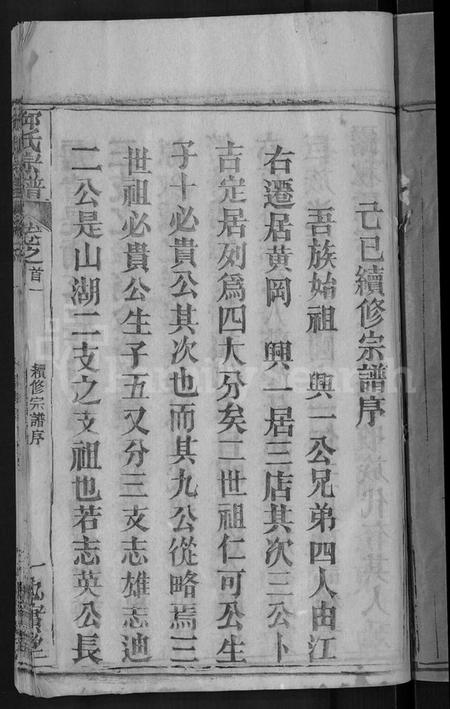 己巳續修宗譜序
吾族始祖 興一公兄弟四人由江
右遷居黄岡 興一居三店其次三公卜
吉定居列爲四大分矣二世祖仁可公生
子十必貴公其次也而其九公從略焉三
世祖必貴公生子五又分三支志雄志迪
二公是山湖二支之支祖也若志英公長
氏宗譜
卷之首一
續修宗譜序